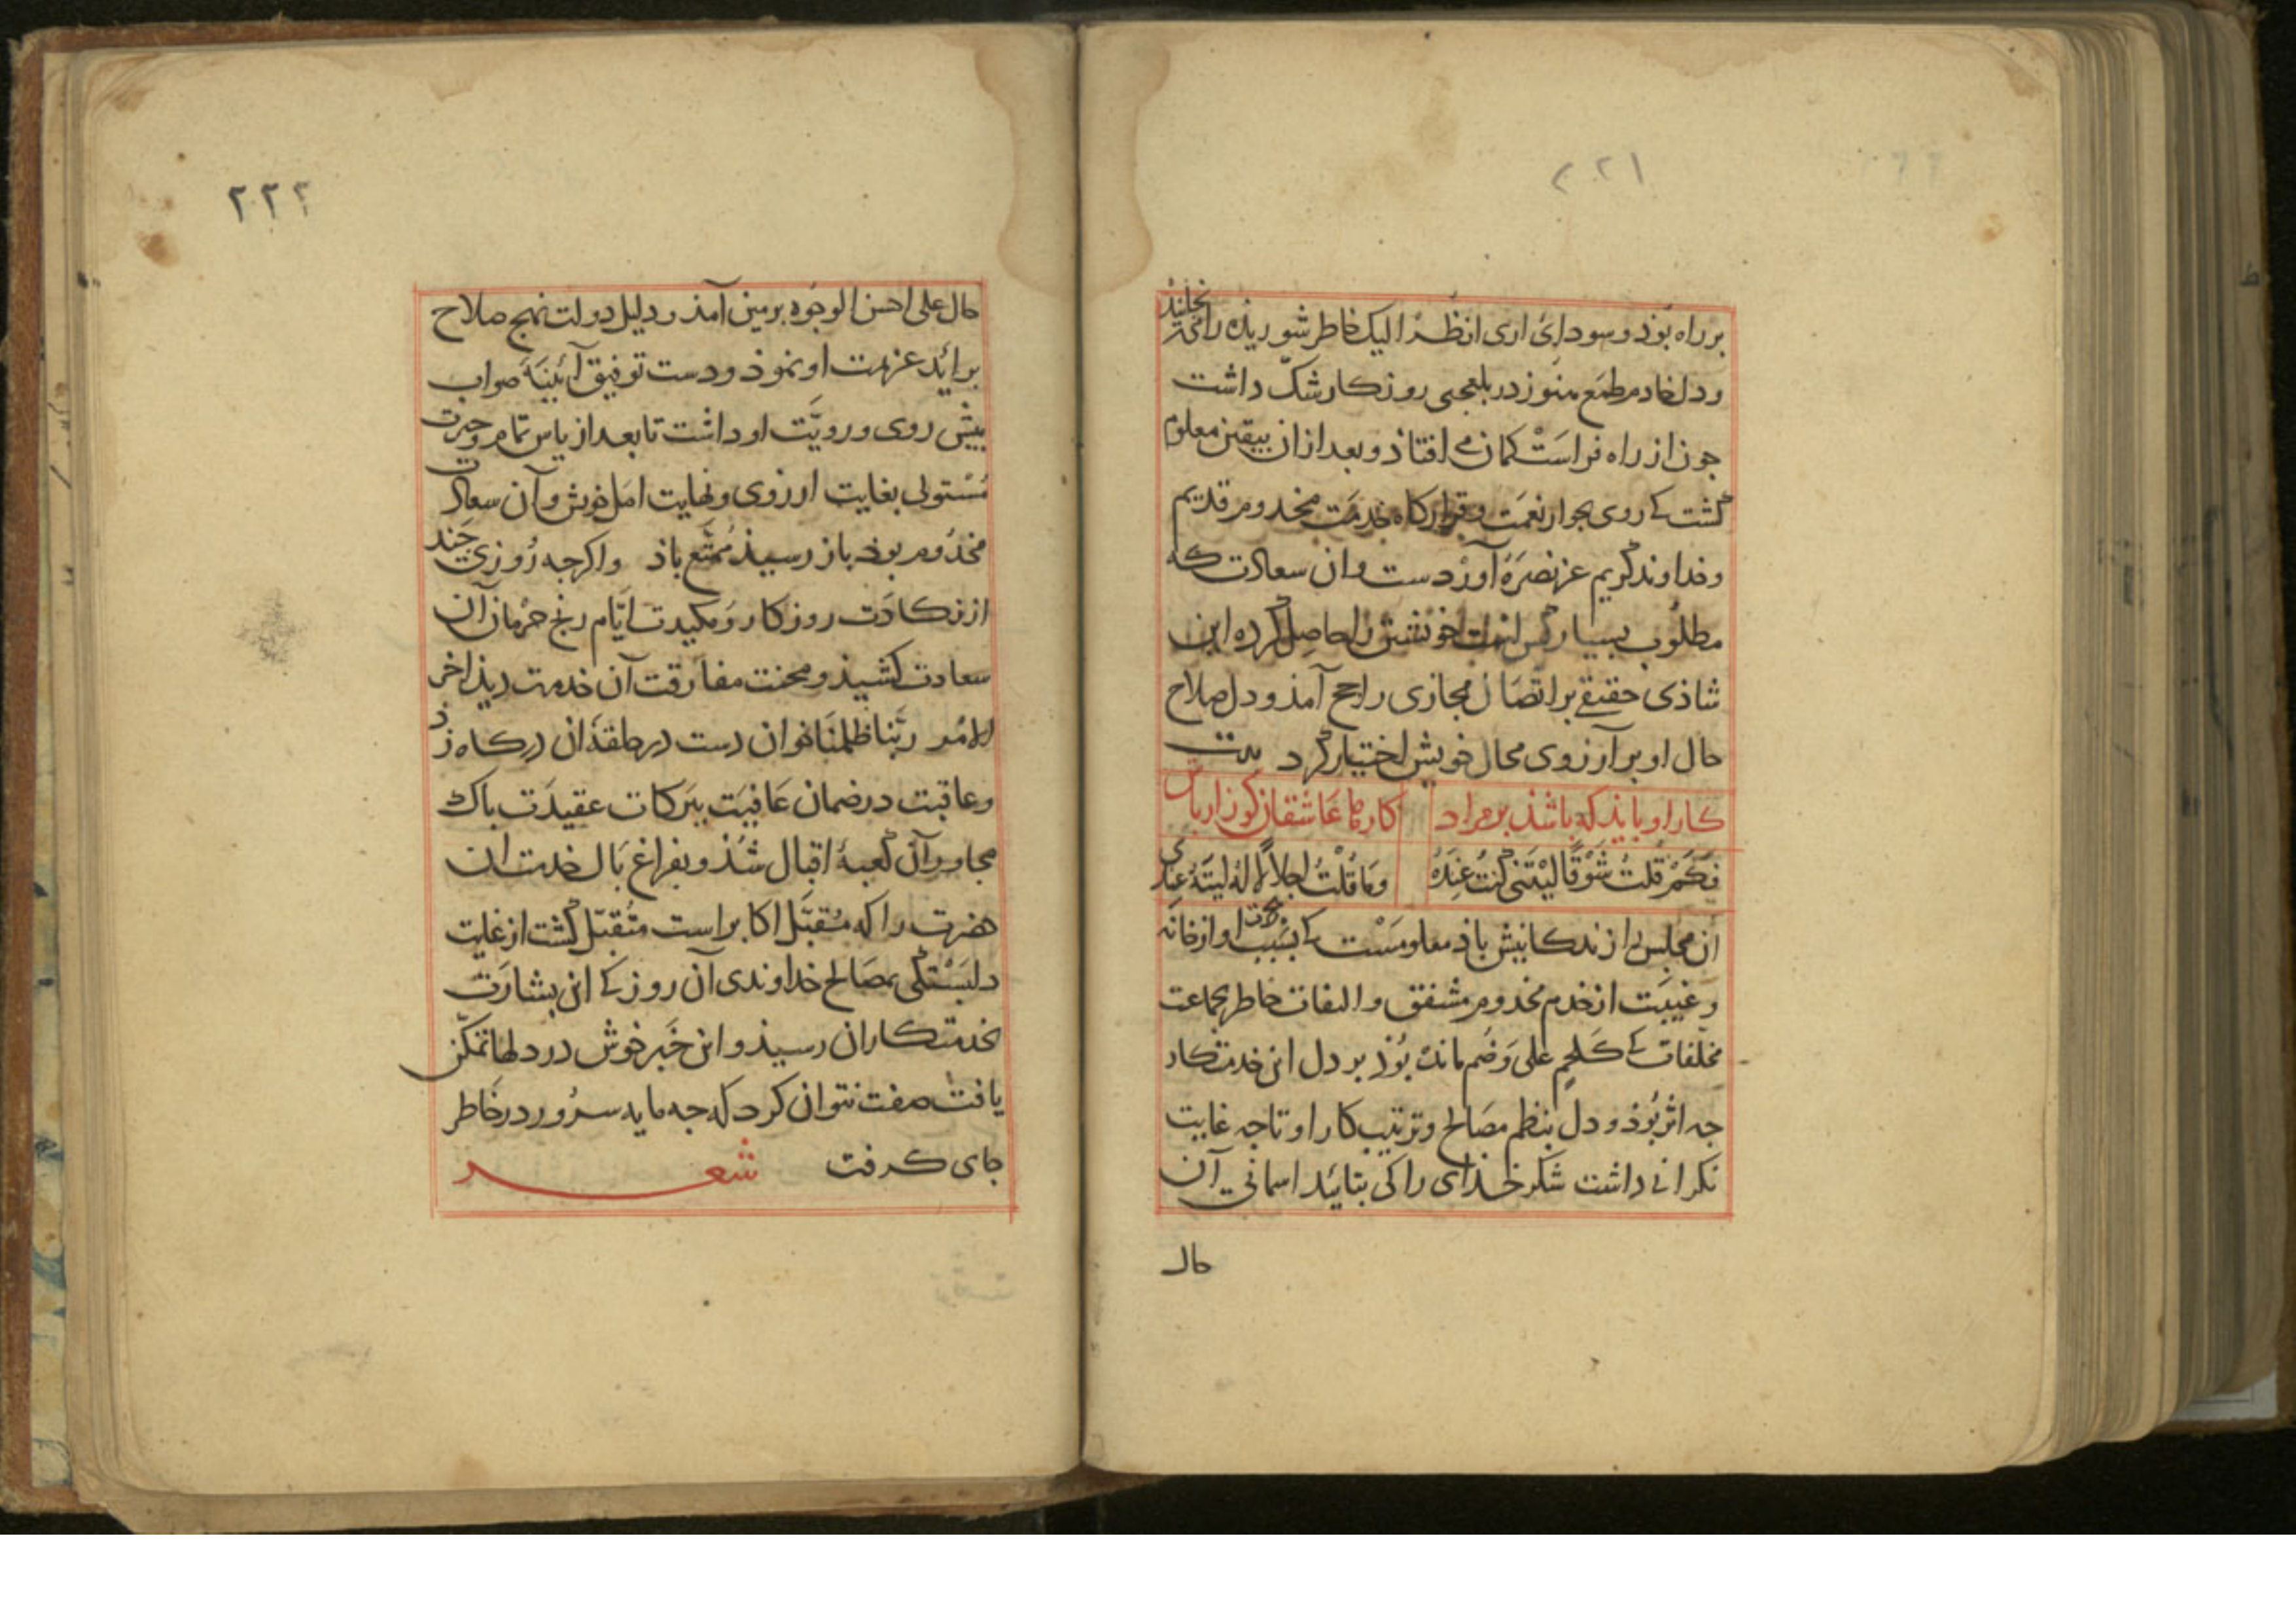 ٢٢١
بر راه بوذ و سودای اری انظر الیک خاطر شوریذه را می‌خلیذ
و دل خادم طمع هنوز در بلعجبی روزکار شکّ داشت
جون از راه فراست کمان می افتاذ و بعد ازان بیقین معلوم
کشت کی روی بجوار نعمت و قرارکاه خدمت مخدوم قدیم
و خداوند کریم عز نصره آورد دست و ان سعادت که
مطلوب بسیار کس خویشتن را حاصل کرده این
شاذی حقیقی بر اتصال مجازی راجح آمذ و دل صلاح
حال او بر آرزوی محال خویش اختیار کرد بیت
کار او بایذ که باشذ بر مراد کار ما عاشقان کو زار باش
فکم قلت شوقا لیتنی کنت عنده وما قلت اجلالا له لیته عندی
ان مجلس را از ندکانیش باذ معلومست کی بسبب نکبت او از خانه
و غیبت از خدم مخدوم مشفق و التفات خاطر بجماعت
مخلفات کی کلحم علی وضم مانده بوذ بر دل این خدمتکار
جه اثر بوذ و دل بنظم مصالح و ترتیب کار او تا جه غایت
نکرانی داشت شکر خذای را کی بتائید اسمانی آن
حال
٢٢٢
حال علی احسن الوجوه برمین آمذ و دلیل دولت نهج صلاح
برائد عزیمت او نموذ و دست توفیق آئینه صواب
بیش روی و رویّت او داشت تا بعد از یاس تمام و حیرت
مستولی بغایت ارزوی و نهایت امل خویش و آن سعادت
مخدوم بوذ باز رسیذ مُمتّع باذ واکرجه روزی جند
از نکادت روزکار و مکیدت ایّام رنج حرمان آن
سعادت کشیذ و محنت مفارقت آن خدمت دیذ اخر
الامر ربّنا ظلمنا خوان دست در حلقهٔ ان درکاه زذ
و عاقبت در ضمان عافیت ببرکات عقیدت باک
مجاور آن کعبهٔ اقبال شذ و بفراغ بال خدمت ان
حضرت را که مُقبّل اکابر است متقبّل کشت از غایت
دلبستکی بمصالح خداوندی آن روز کی این بشارت
بخدمتکاران رسیذ و این خبر خوش در دلها تمکّن
یافت صفت نتوان کرد که جه مایه سرور در خاطر
جای کرفت شعر